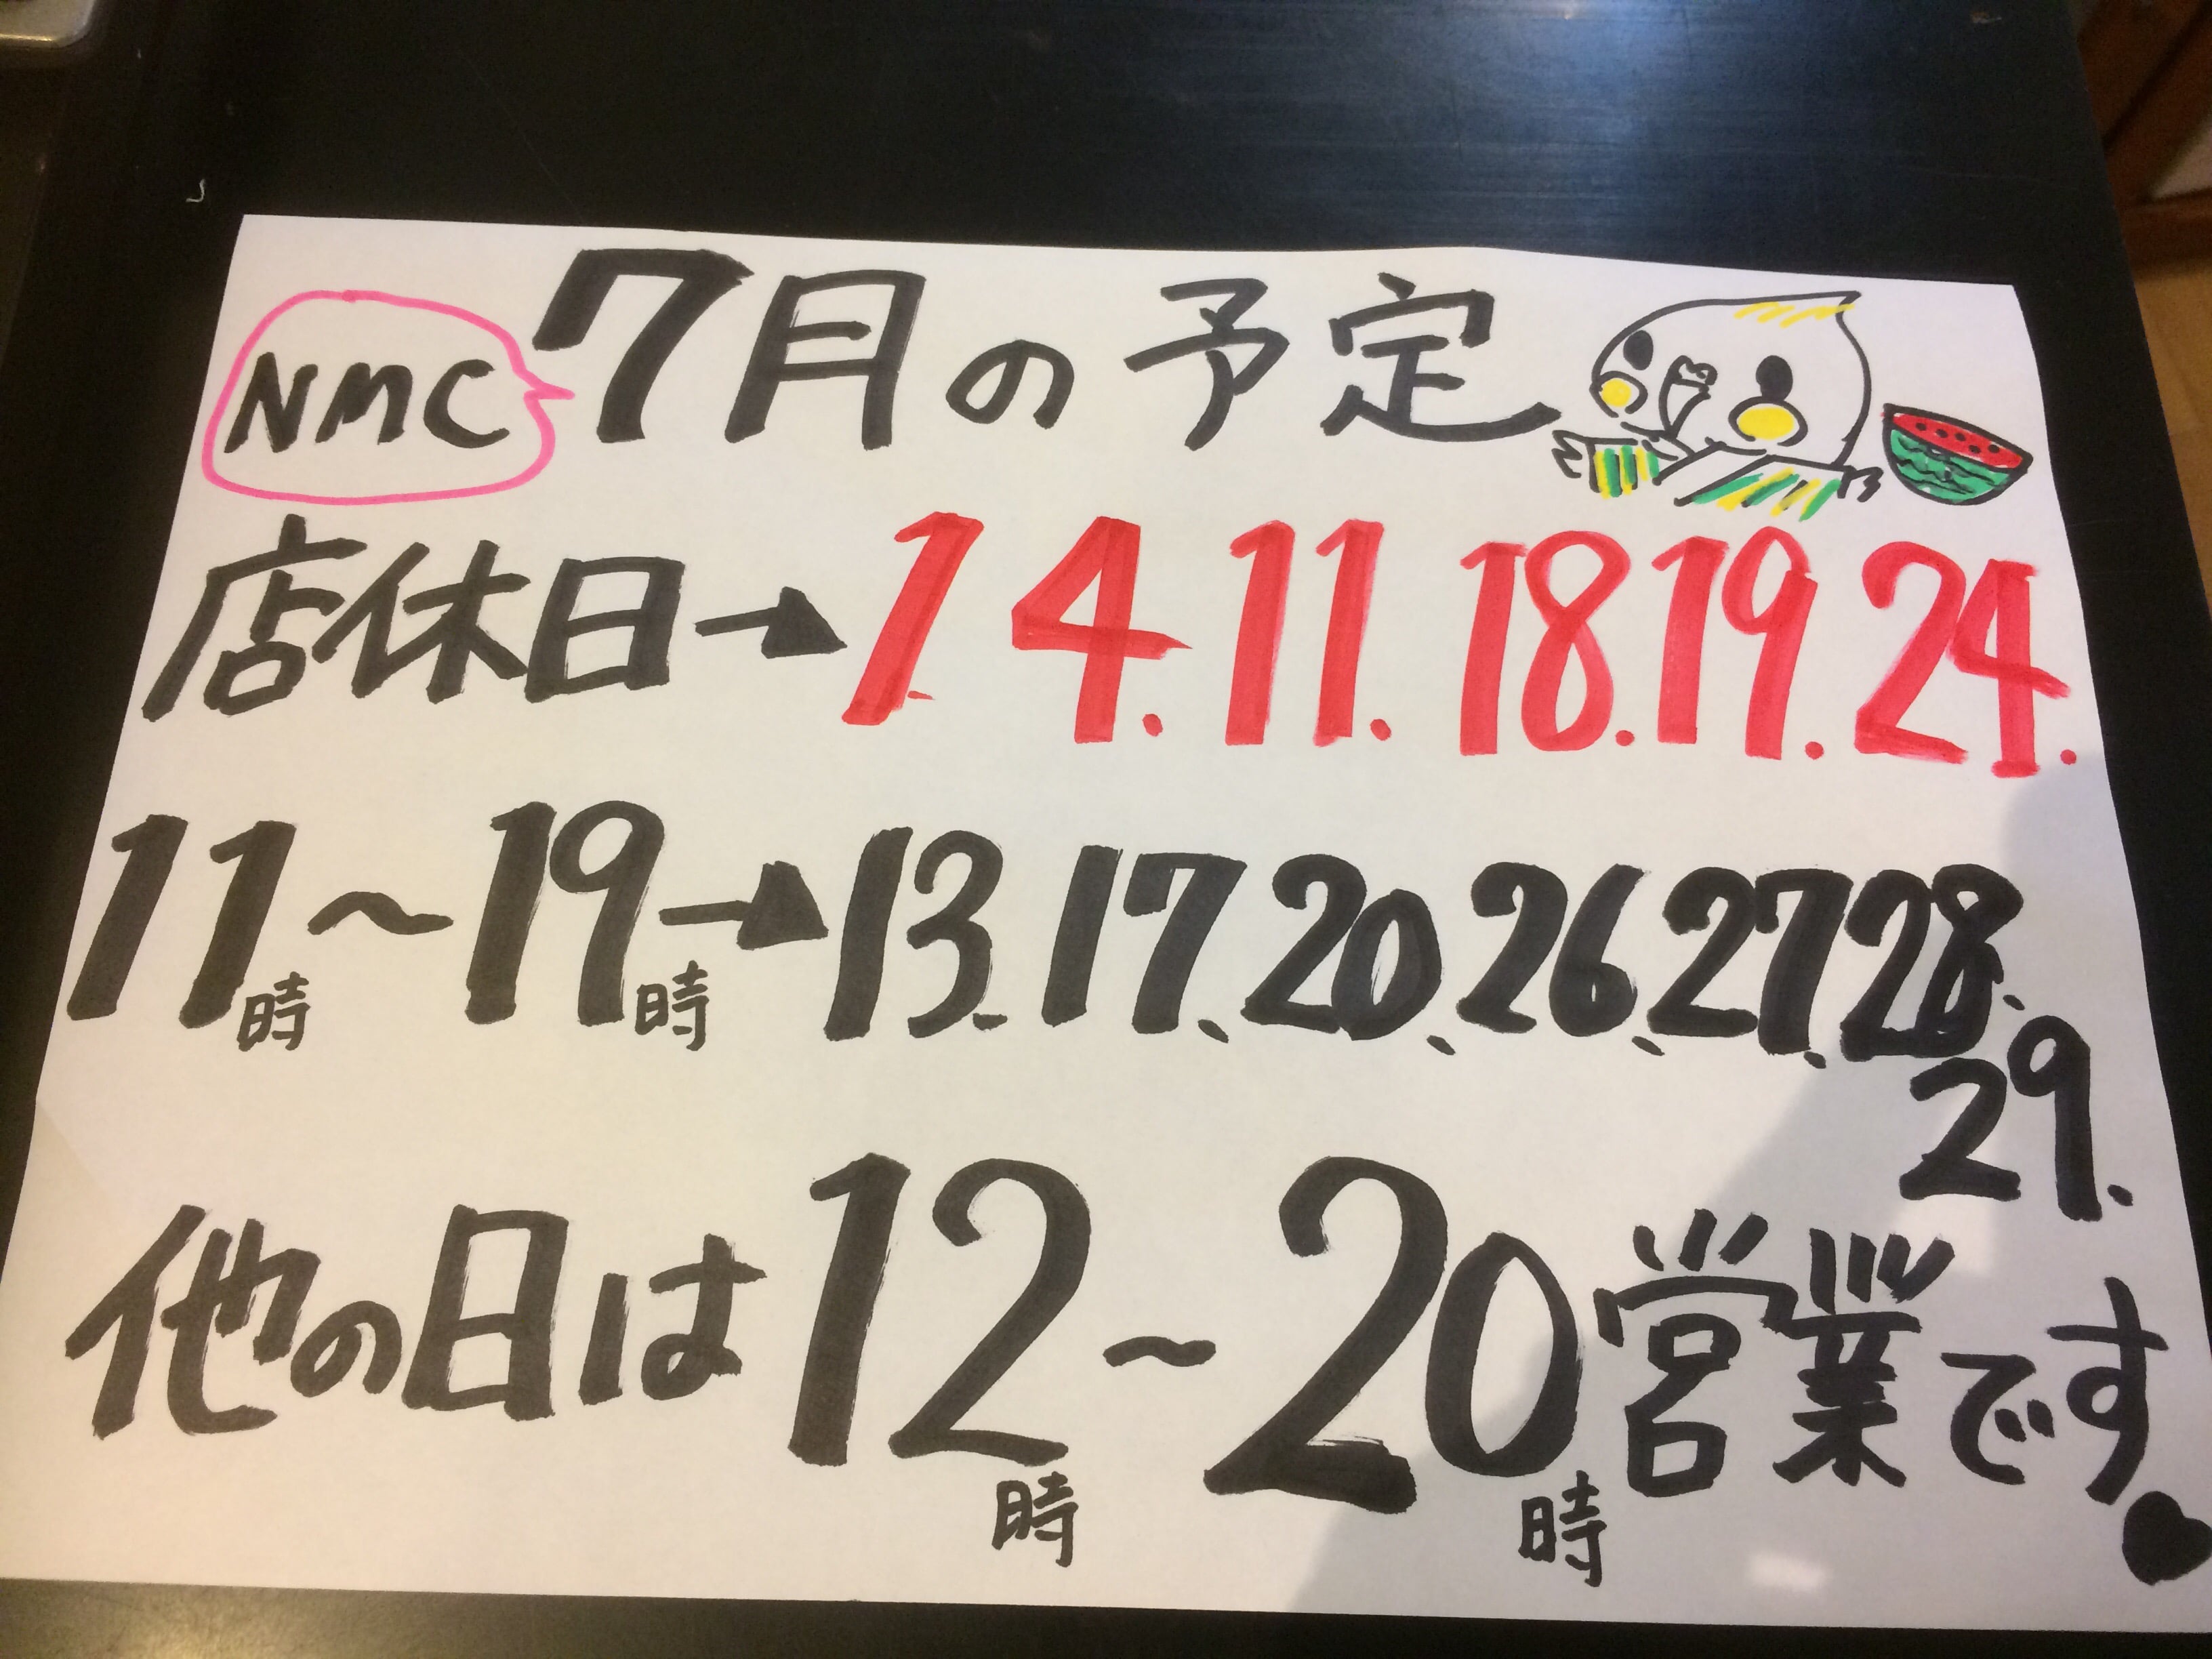 NMC 7月の予定
店休日→1.4.11.18.19.24.
11時～19時→13.17、20、26、27、28、
29.
他の日は12時～20時営業です♥